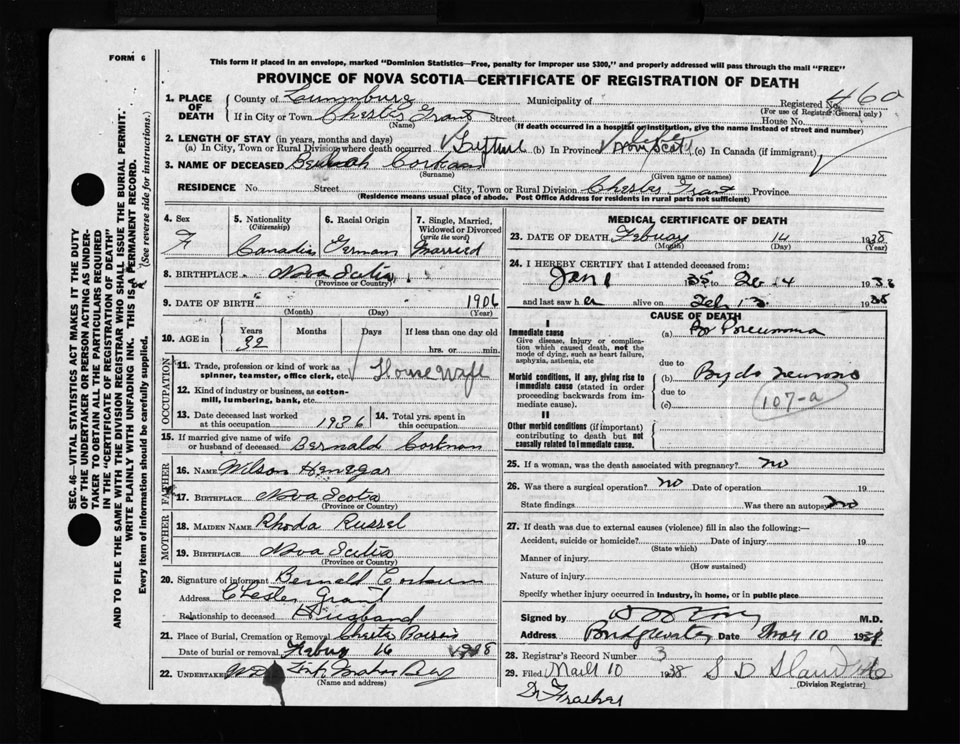 FORM 6
This form if placed in an envelope, marked "Dominion Statistics—Free, penalty for improper use $300," and properly addressed will pass through the mail "FREE"
PROVINCE OF NOVA SCOTIA—CERTIFICATE OF REGISTRATION OF DEATH
SEC. 46—VITAL STATISTICS ACT MAKES IT THE DUTY
OF THE UNDERTAKER OR PERSON ACTING AS UNDER-
TAKER TO OBTAIN ALL THE PARTICULARS REQUIRED
IN THE "CERTIFICATE OF REGISTRATION OF DEATH"
AND TO FILE THE SAME WITH THE DIVISION REGISTRAR WHO SHALL ISSUE THE BURIAL PERMIT.
WRITE PLAINLY WITH UNFADING INK. THIS IS A PERMANENT RECORD.
Every item of information should be carefully supplied. (See reverse side for instructions.)
1. PLACE OF DEATH County of Lunenburg Municipality of Registered No. 460
(For use of Registrar General only)
If in City or Town Chester Grant Street House No.
(Name) (If death occurred in a hospital or institution, give the name instead of street and number)
2. LENGTH OF STAY (in years, months and days)
(a) In City, Town or Rural Division where death occurred (b) In Province (c) In Canada (if immigrant)
3. NAME OF DECEASED Beulah
(Surname) (Given name or names)
RESIDENCE No. Street City, Town or Rural Division Chester Grant Province
(Residence means usual place of abode. Post Office Address for residents in rural parts not sufficient)
4. Sex F
5. Nationality (Citizenship) Canadia
6. Racial Origin German
7. Single, Married, Widowed or Divorced (write the word) Married
8. BIRTHPLACE Nova Scotia
(Province or Country)
9. DATE OF BIRTH 1906
(Month) (Day) (Year)
10. AGE in Years Months Days If less than one day old
32 hrs. or min.
OCCUPATION
11. Trade, profession or kind of work as spinner, teamster, office clerk, etc. House Wife
12. Kind of industry or business, as cotton-mill, lumbering, bank, etc.
13. Date deceased last worked at this occupation 1936 14. Total yrs. spent in this occupation
15. If married give name of wife or husband of deceased Bernald
FATHER
16. NAME Wilson Henegar
17. BIRTHPLACE Nova Scota
(Province or Country)
MOTHER
18. MAIDEN NAME Rhoda Russel
19. BIRTHPLACE Nova Scotia
(Province or Country)
20. Signature of informant Bernald
Address Chester Grant
Relationship to deceased Husband
21. Place of Burial, Cremation or Removal Chester
Date of burial or removal 16
22. UNDERTAKER
(Name and address)
MEDICAL CERTIFICATE OF DEATH
23. DATE OF DEATH Febuary 14 1938
(Month) (Day) (Year)
24. I HEREBY CERTIFY that I attended deceased from:
Jan 1 35 to 14 1938
and last saw her alive on Feb 13 1938
CAUSE OF DEATH
I
Immediate cause
Give disease, injury or complication which caused death, not the mode of dying, such as heart failure, asphyxia, asthenia, etc
(a)
due to
Morbid conditions, if any, giving rise to immediate cause (stated in order proceeding backwards from immediate cause).
(b)
due to
(c)
107-a
II
Other morbid conditions (if important) contributing to death but not causally related to immediate cause.
25. If a woman, was the death associated with pregnancy? no
26. Was there a surgical operation? no Date of operation 19
State findings Was there an autopsy? no
27. If death was due to external causes (violence) fill in also the following:—
Accident, suicide or homicide? Date of injury 19
(State which)
Manner of injury
(How sustained)
Nature of injury
Specify whether injury occurred in industry, in home, or in public place
Signed by M.D.
Address Bridgewater Date 10 193
28. Registrar's Record Number 3
29. Filed 10 1938
(Division Registrar)